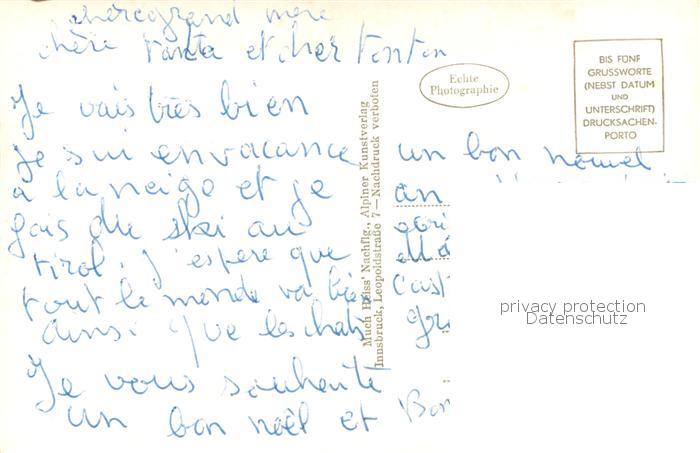 chère grand mere
chère tanta et cher tonton
Je vais très bien
je sui en vacance
a la neige et je
fais du ski au
tirol. j'espere que
tout le monde va bien
ainsi que les chats
Je vous souhaite
un bon noël et Bon
un bon nouvel
an
Echte
Photographie
BIS FÜNF
GRUSSWORTE
(NEBST DATUM
UND
UNTERSCHRIFT)
DRUCKSACHEN-
PORTO
Much Heiss' Nachflg., Alpiner Kunstverlag
Innsbruck, Leopoldstraße 7 — Nachdruck verboten
privacy protection
Datenschutz